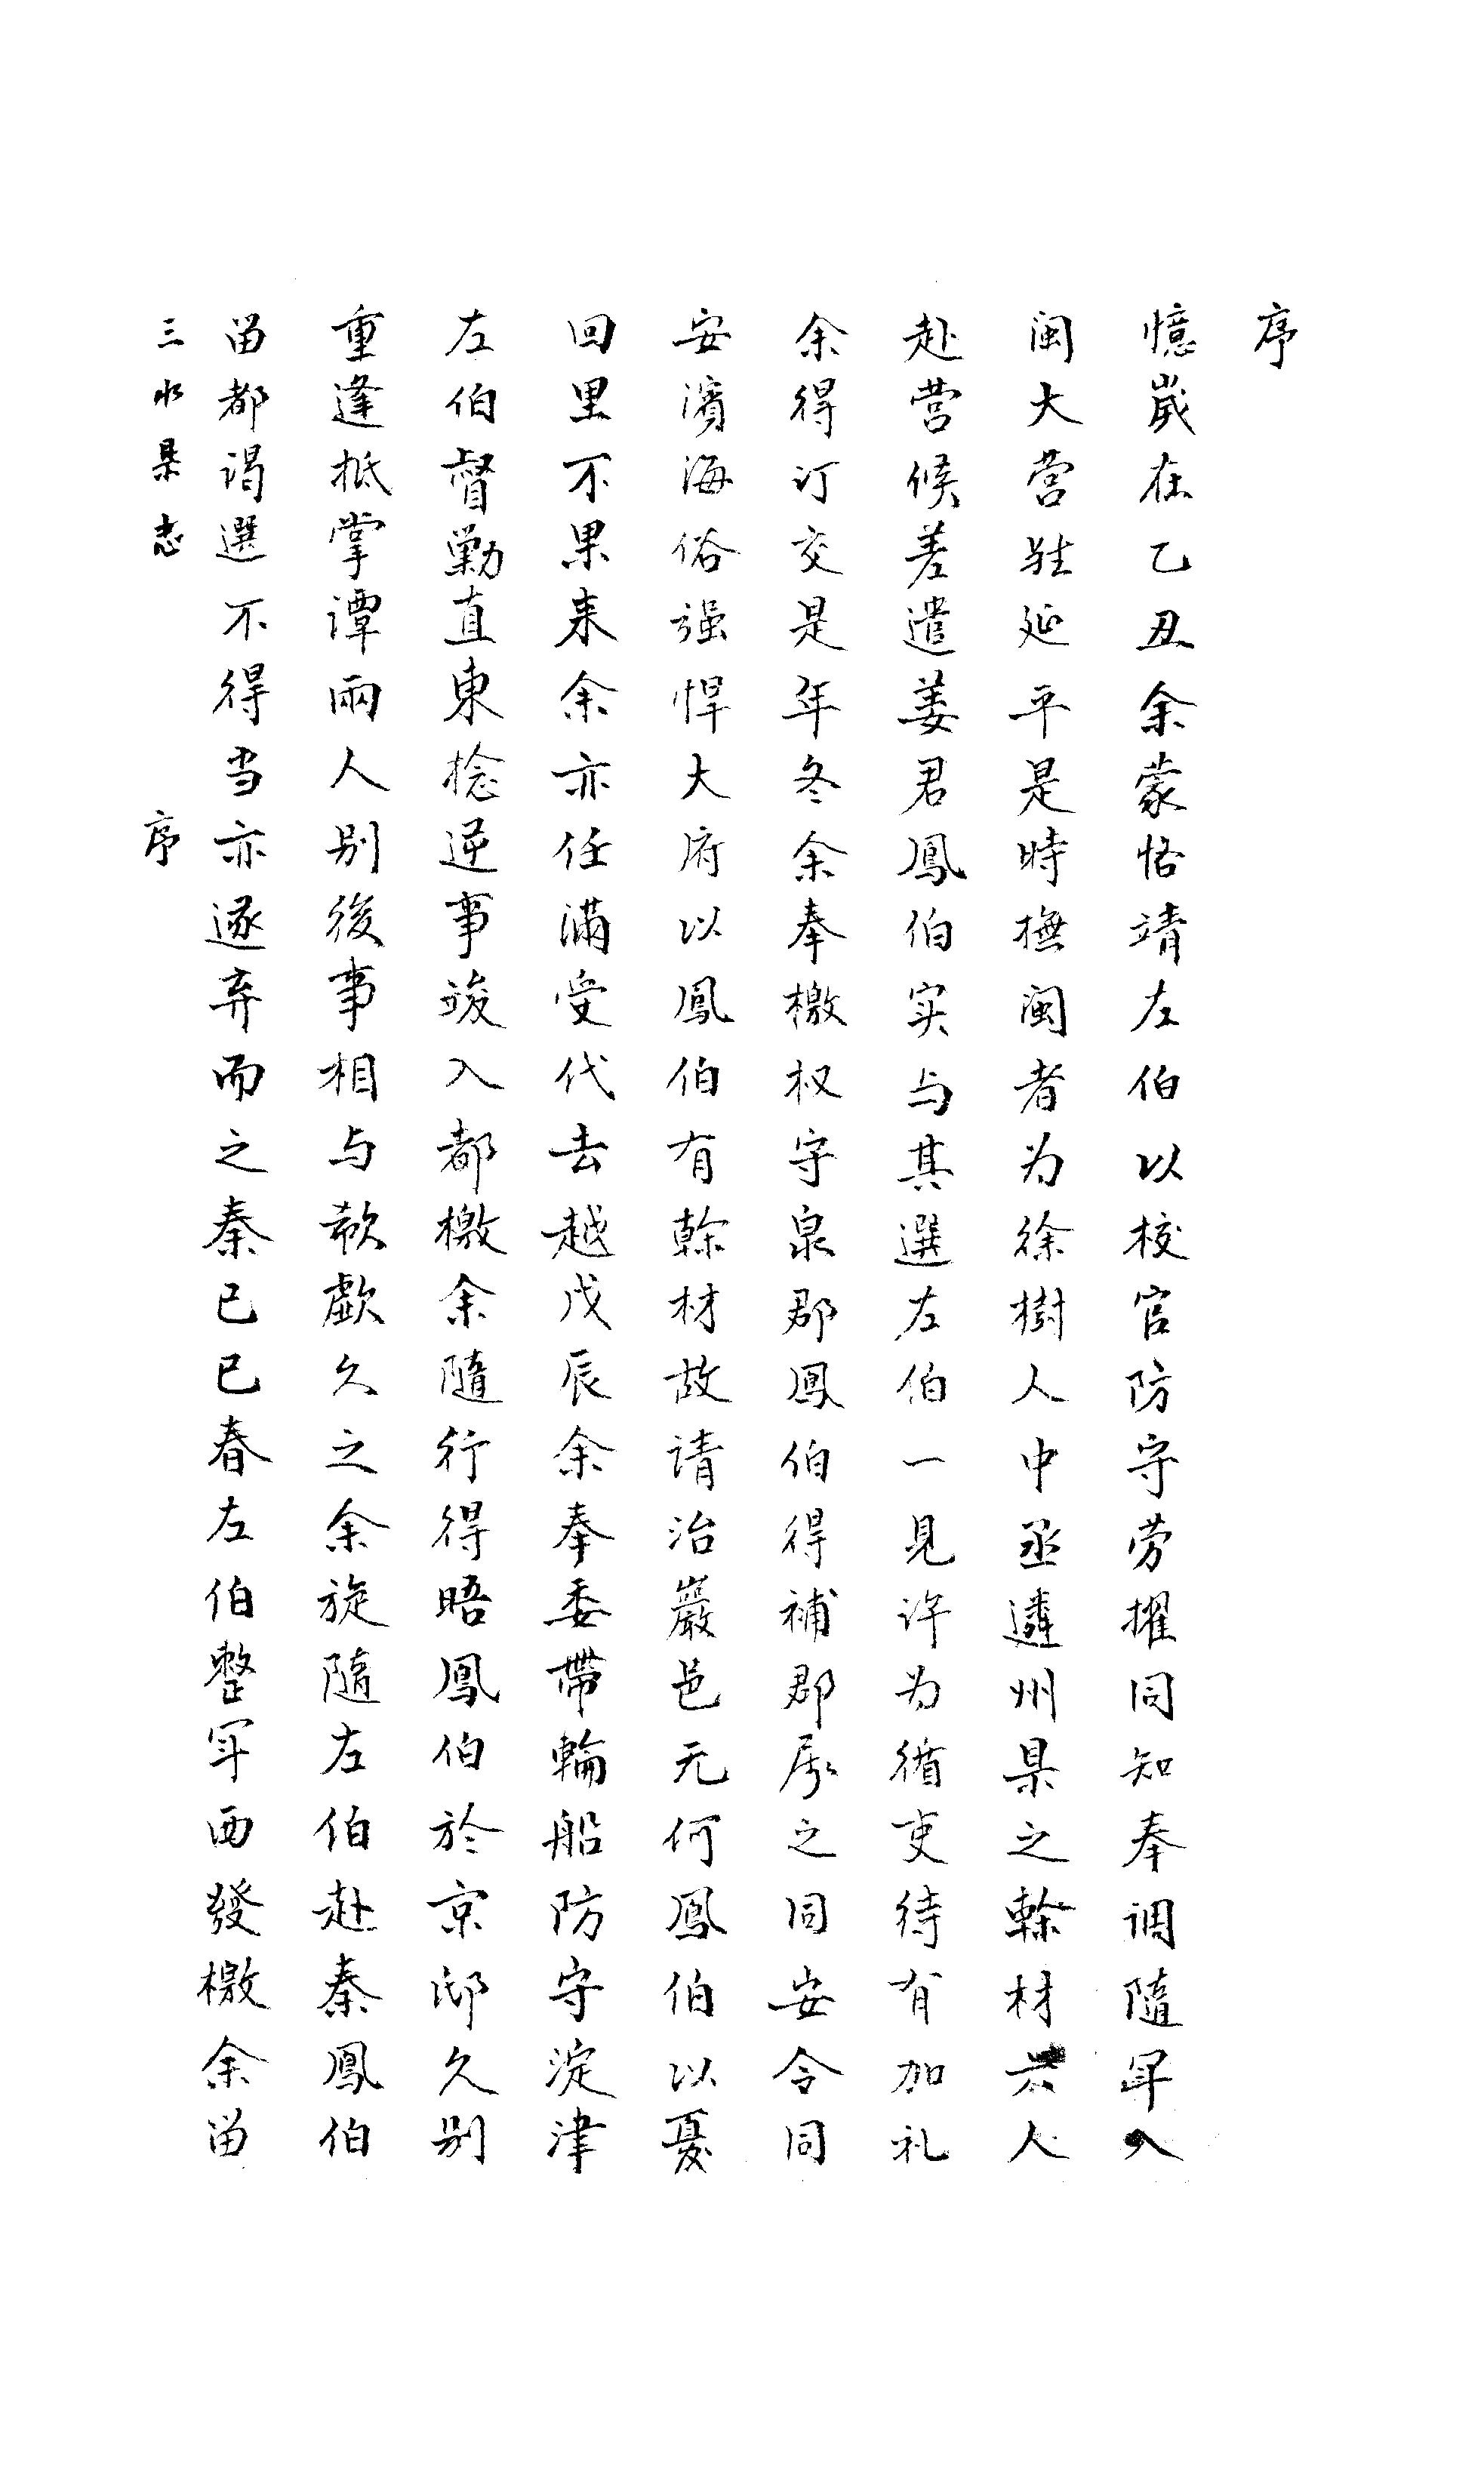 序
憶歲在乙丑余蒙恪靖左伯以校官防守劳擢同知奉调隨军入
闽大营驻延平是時撫闽者为徐樹人中丞遴州県之幹材六人
赴营候差遣姜君鳳伯实与其選左伯一見许为循吏待有加礼
余得订交是年冬余奉檄权守泉郡鳳伯得補郡属之同安令同
安濱海俗强悍大府以鳳伯有幹材故请治巖邑无何鳳伯以憂
回里不果来余亦任滿受代去越戊辰余奉委帶輪船防守淀津
左伯督勦直東捻逆事竣入都檄余隨行得晤鳳伯於京邸久别
重逢抵掌谭兩人别後事相与欷歔久之余旋隨左伯赴秦鳳伯
畄都谒選不得当亦遂弃而之秦已巳春左伯整军西發檄余畄
三水県志
序